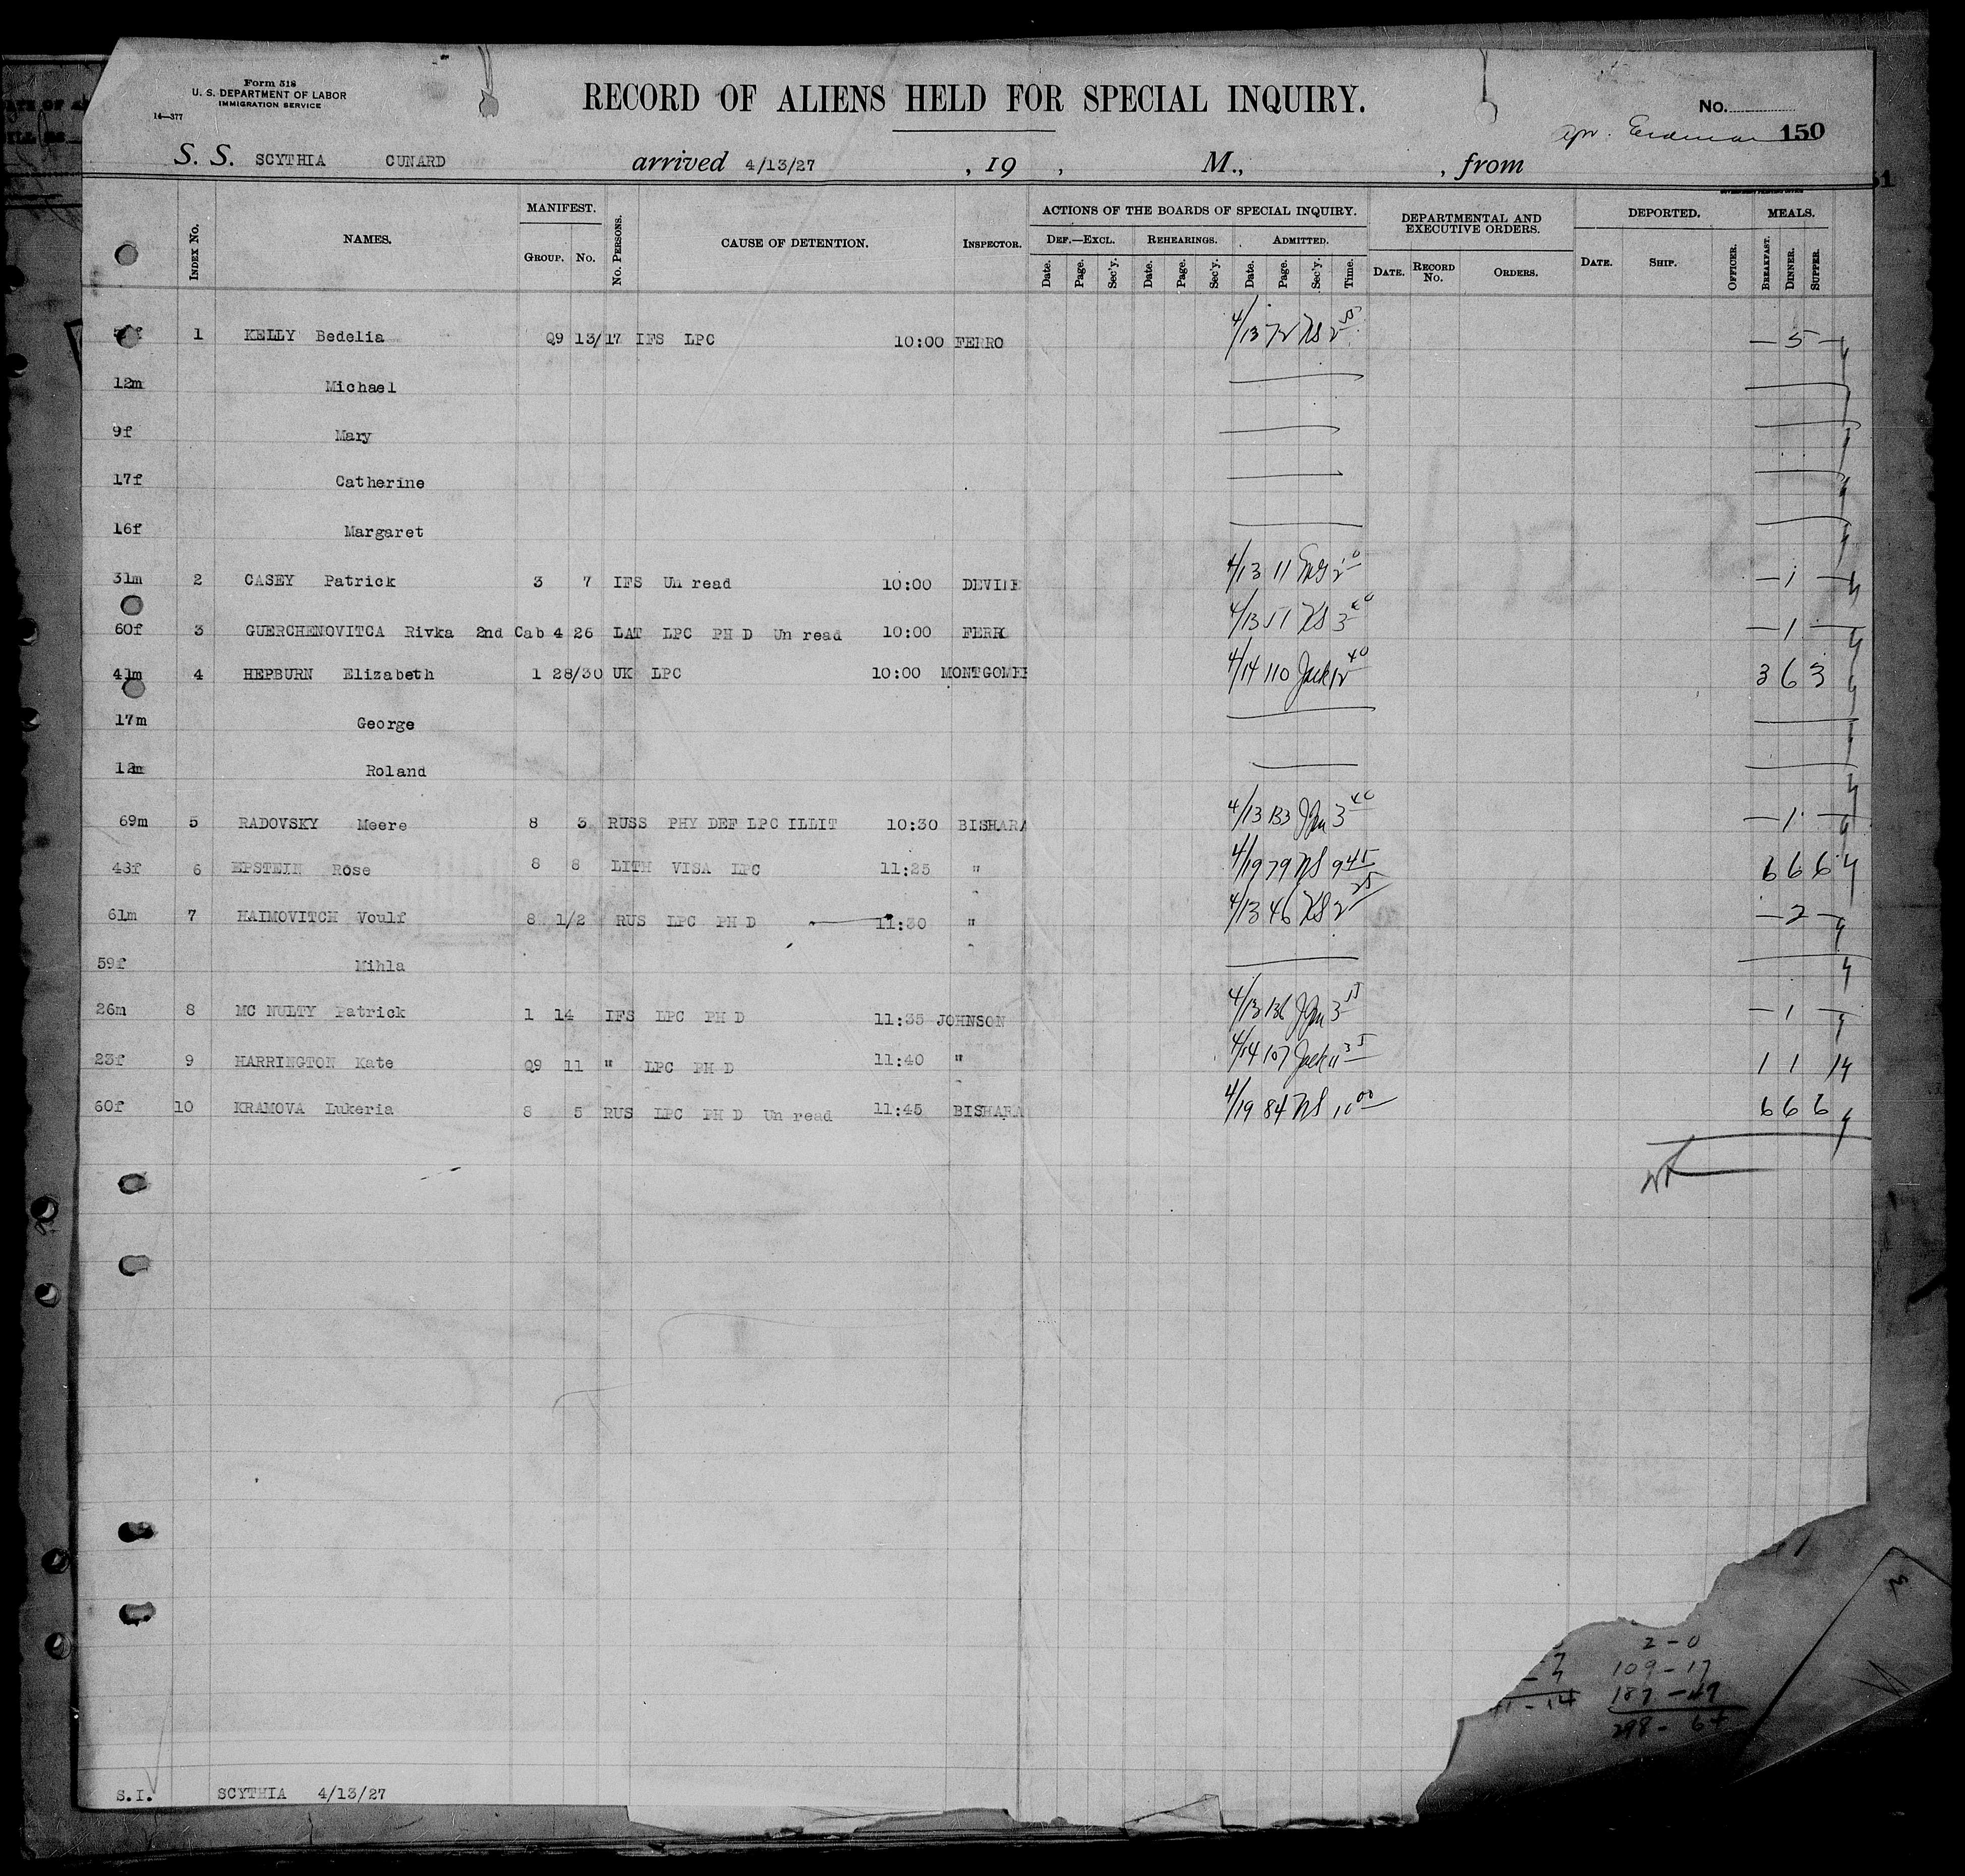 Form 518
U. S. DEPARTMENT OF LABOR
IMMIGRATION SERVICE
14—377
RECORD OF ALIENS HELD FOR SPECIAL INQUIRY.
No.
150
S. S. SCYTHIA CUNARD arrived 4/13/27 , 19 , M., , from
INDEX No. NAMES. MANIFEST. GROUP. No. No. PERSONS. CAUSE OF DETENTION. INSPECTOR. ACTIONS OF THE BOARDS OF SPECIAL INQUIRY. DEPARTMENTAL AND EXECUTIVE ORDERS. DEPORTED. MEALS.
DEF.—EXCL. REHEARINGS. ADMITTED.
Date. Page. Sec'y. Date. Page. Sec'y. Date. Page. Sec'y. Time. DATE. RECORD No. ORDERS. DATE. SHIP. OFFICER. BREAKFAST. DINNER. SUPPER.
1 KELLY Bedelia Q9 13/17 IFS LPC 10:00 FERRO 4/13 72 — 5 —
12m Michael
9f Mary
17f Catherine
16f Margaret
31m 2 CASEY Patrick 3 7 IFS Un read 10:00 4/13 11 — 1 —
60f 3 GUERCHENOVITCA Rivka 2nd Cab 4 26 LAT LPC PH D Un read 10:00 FERR 4/13 51 — 1 —
41m 4 HEPBURN Elizabeth 1 28/30 UK LPC 10:00 MONTGOMER 4/14 110 Jack 12 40 3 6 3
17m George
12m Roland
69m 5 RADOVSKY Meere 8 3 RUSS PHY DEF LPC ILLIT 10:30 BISHARA 4/13 133 3 40 — 1 —
48f 6 EPSTEIN Rose 8 8 LITH VISA LPC 11:25 " 4/19 79 NS 9 45 6 6 6
61m 7 HAIMOVITCH Voulf 8 1/2 RUS LPC PH D 11:30 " 4/13 46 2 25 — 2 —
59f Mihla
26m 8 MC NULTY Patrick 1 14 IFS LPC PH D 11:35 JOHNSON 4/13 136 3 15 — 1 —
23f 9 HARRINGTON Kate Q9 11 " LPC PH D 11:40 " 4/14 107 Jack 11 35 1 1 1
60f 10 KRAMOVA Lukeria 8 5 RUS LPC PH D Un read 11:45 BISHARA 4/19 84 NS 10 00 6 6 6
2 - 0
109 - 17
187 - 47
298 - 64
S.I. SCYTHIA 4/13/27